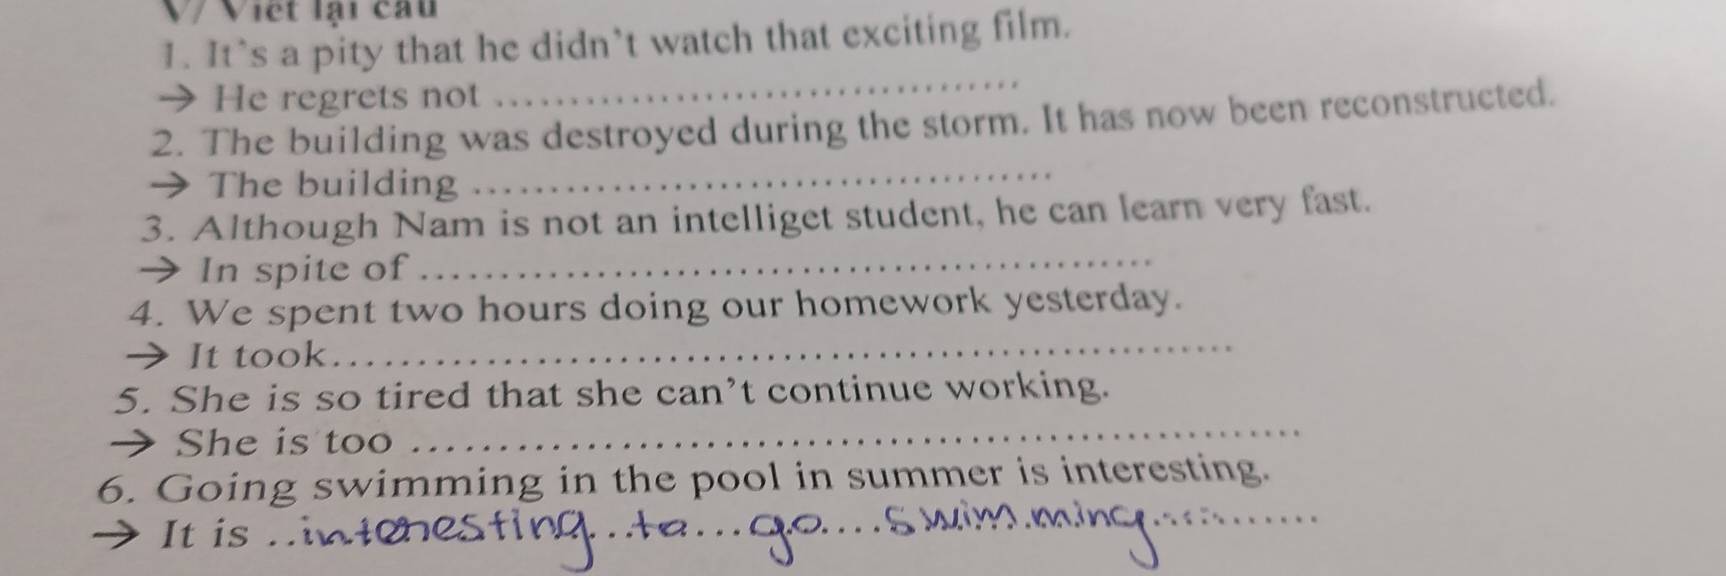 V/ Viết lại câu
1. It's a pity that he didn't watch that exciting film.
→ He regrets not ........................................
2. The building was destroyed during the storm. It has now been reconstructed.
→ The building ........................................
3. Although Nam is not an intelliget student, he can learn very fast.
→ In spite of ........................................
4. We spent two hours doing our homework yesterday.
→ It took........................................
5. She is so tired that she can't continue working.
→ She is too ........................................
6. Going swimming in the pool in summer is interesting.
→ It is ..interesting...to...go....swimming..........